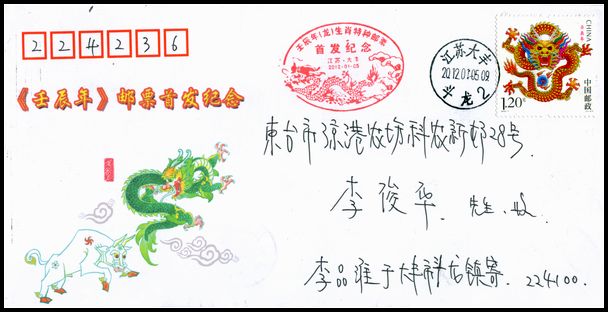 224236
壬辰年(龙)生肖特种邮票
首发纪念
江苏·大丰
2012-01-05
江苏大丰
2012.01.05.09
龙2
CHINA
壬辰年
中国邮政
1.20元
《壬辰年》邮票首发纪念
東台市琼港农场科农新邨28号.
李俊华 先生 收.
李品淮于大丰市龙镇寄. 224100.